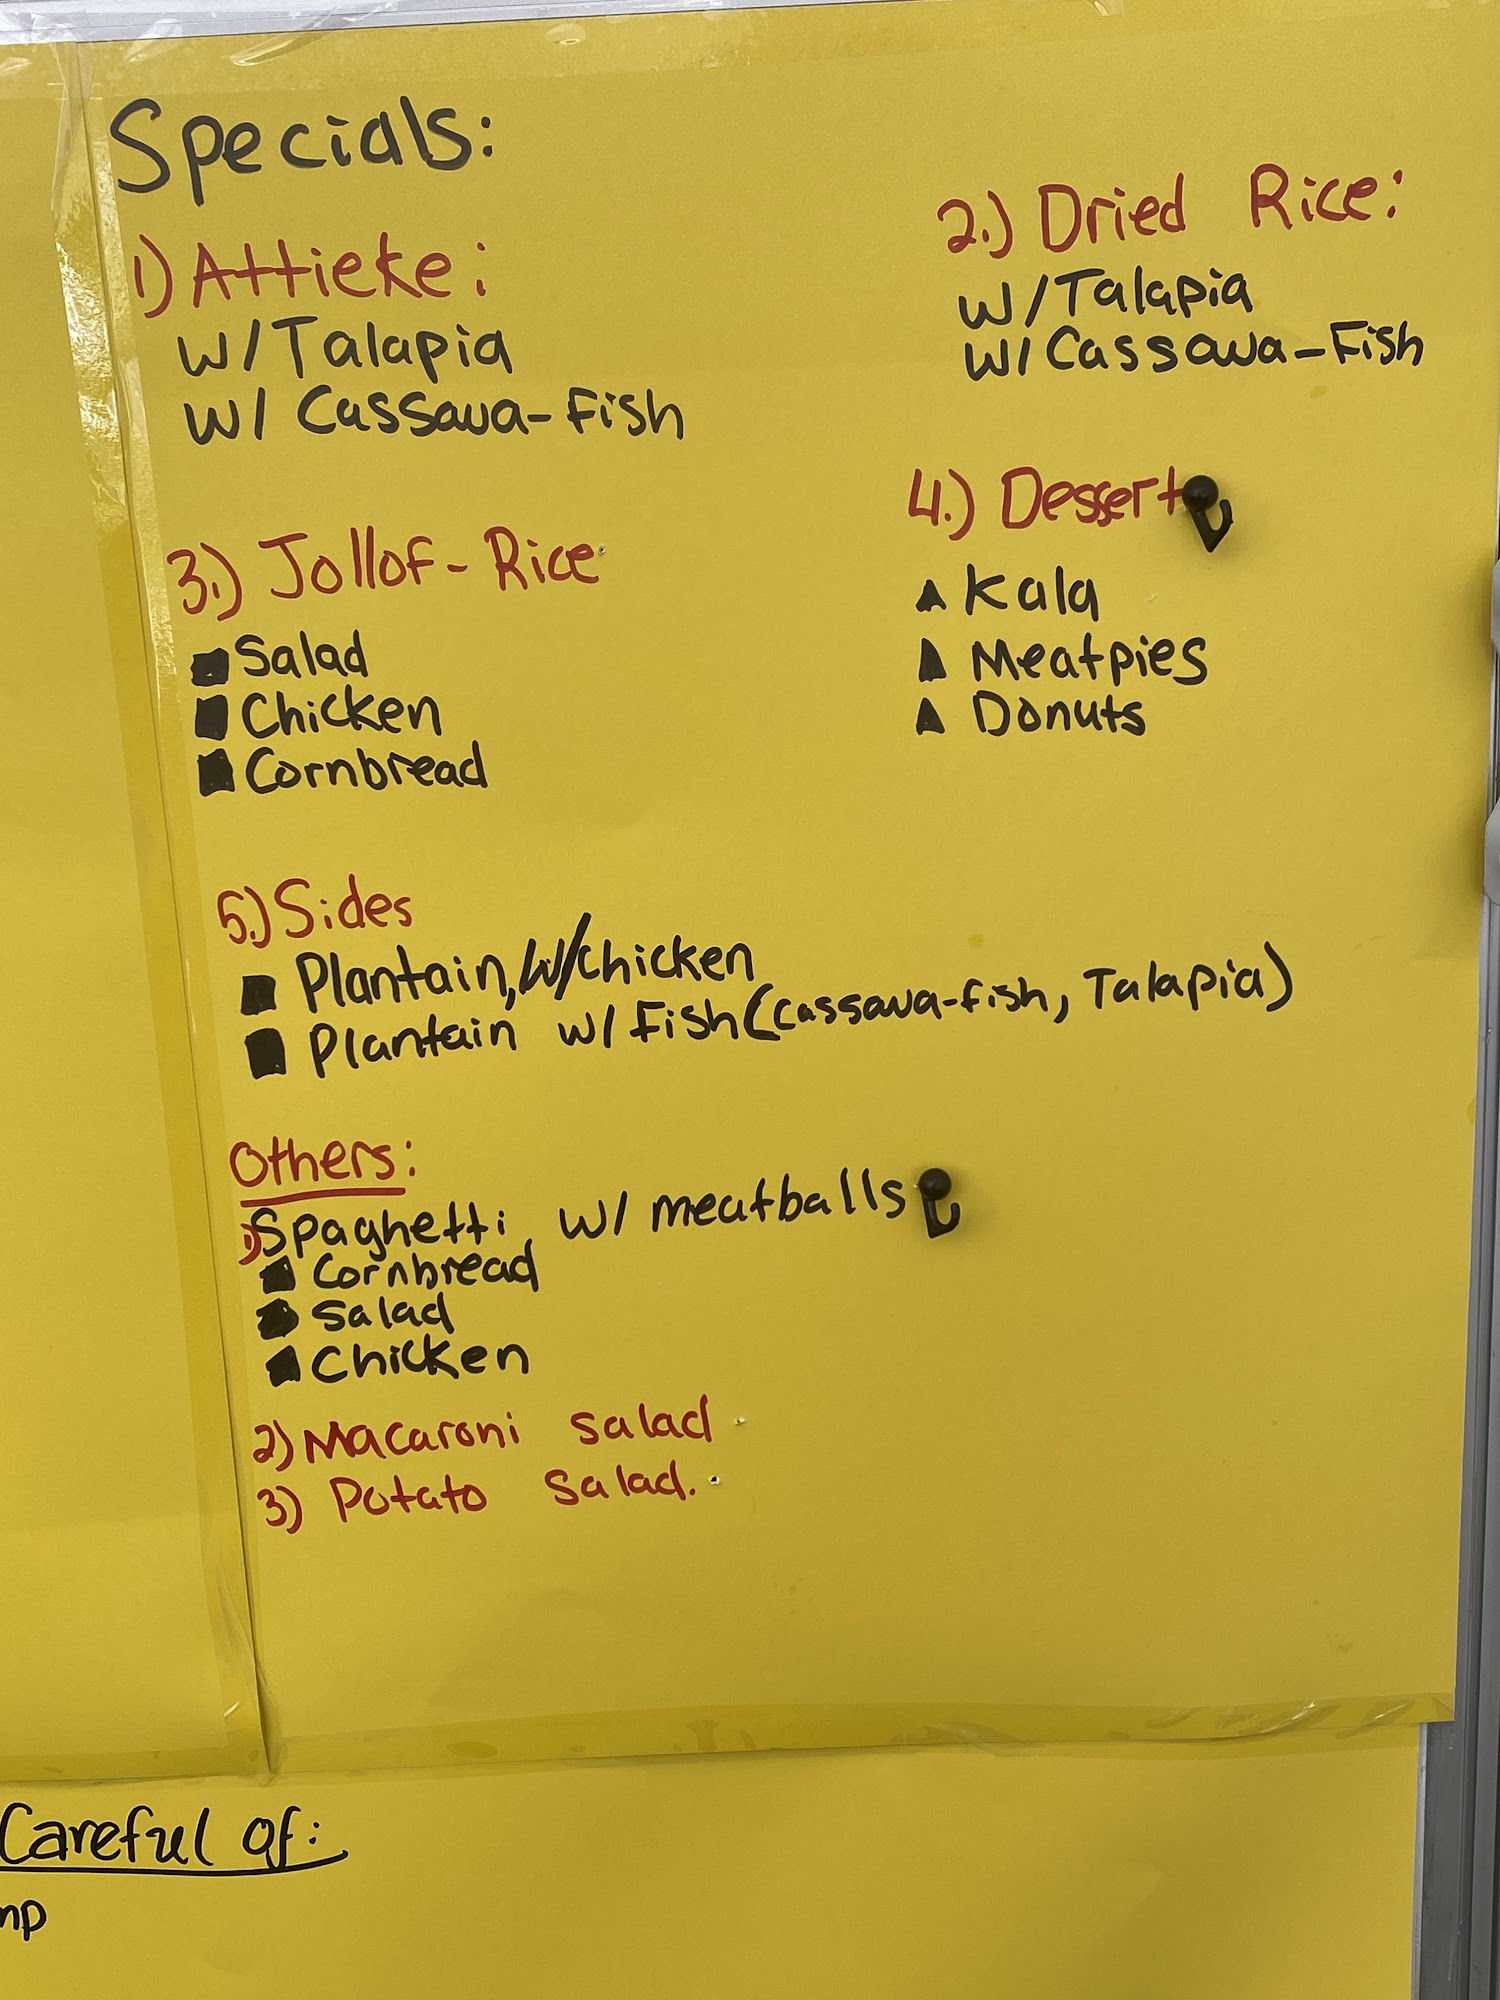 Specials:
1) Attieke:
w/Talapia
w/ Cassava-Fish
2.) Dried Rice:
w/Talapia
w/Cassava-Fish
3.) Jollof-Rice
Salad
Chicken
Cornbread
4.) Dessert
Kala
Meatpies
Donuts
5.) Sides
Plantain, w/chicken
Plantain w/Fish(Cassava-fish, Talapia)
Others:
1) Spaghetti w/ meatballs
Cornbread
Salad
Chicken
2) Macaroni salad
3) Potato salad.
Careful of: